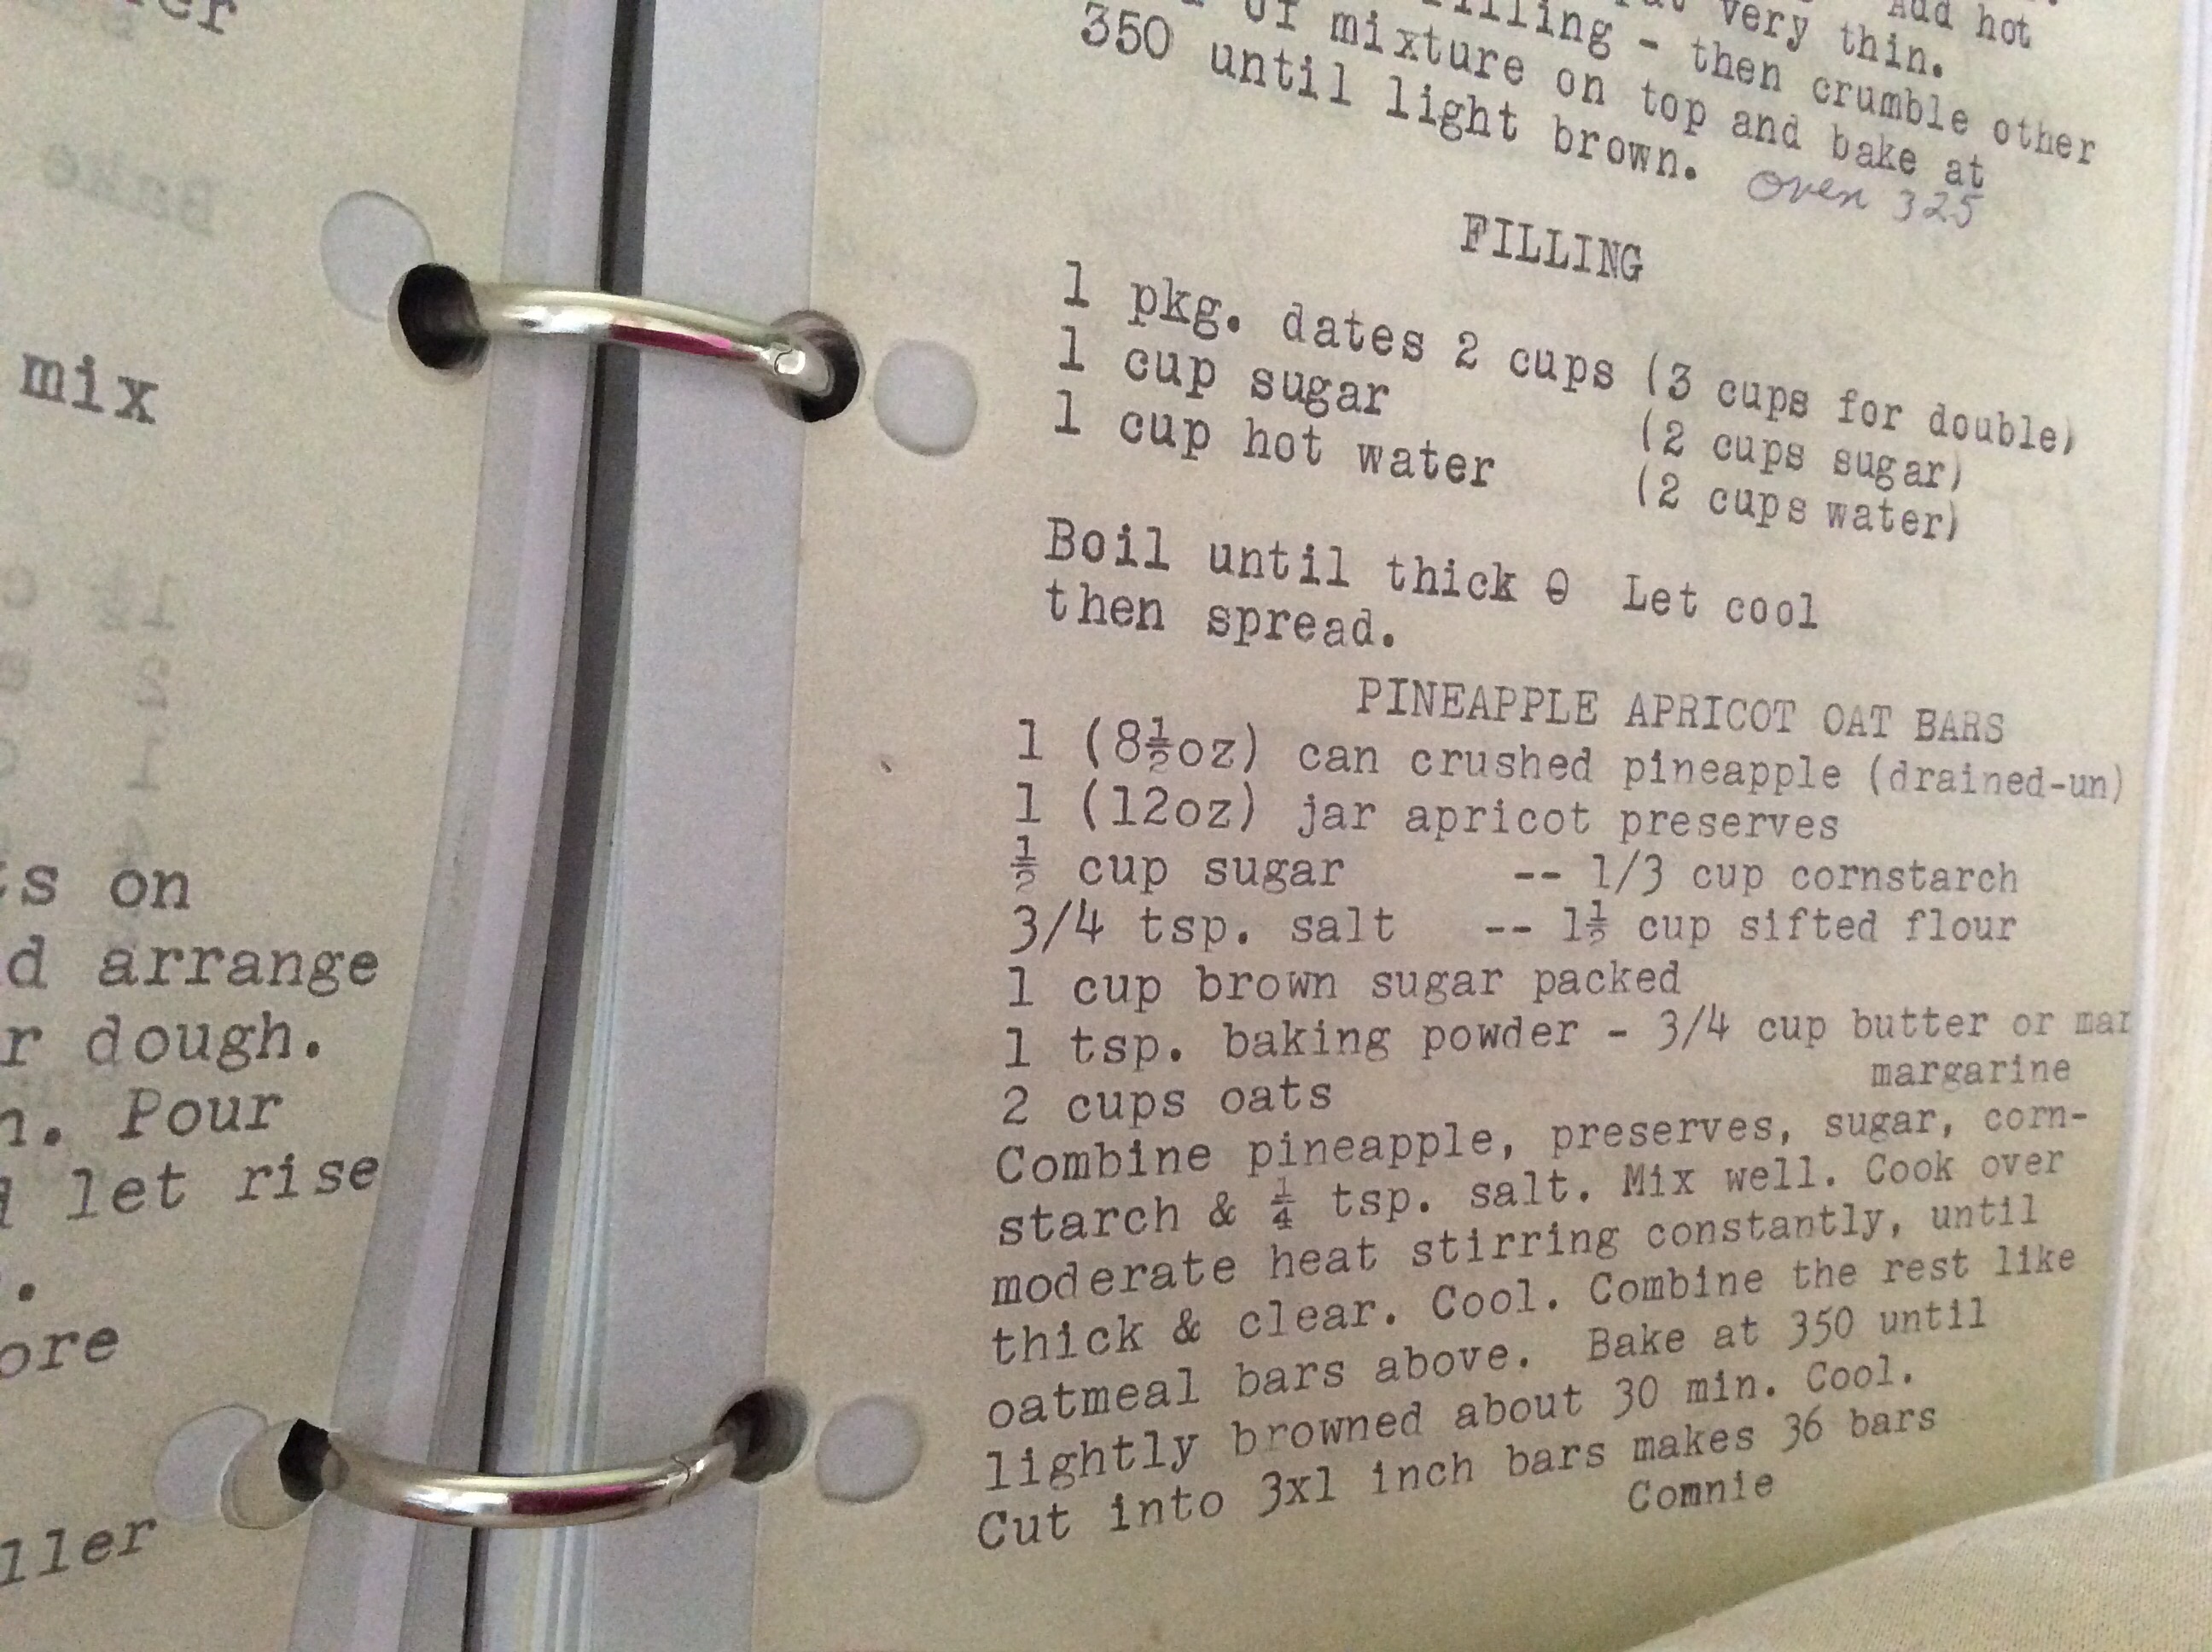 er
mix
s on
d arrange
r dough.
n. Pour
let rise
.
ore
ller
Add hot
very thin.
filling - then crumble other
of mixture on top and bake at
350 until light brown. oven 325
FILLING
1 pkg. dates 2 cups (3 cups for double)
1 cup sugar (2 cups sugar)
1 cup hot water (2 cups water)
Boil until thick Let cool
then spread.
PINEAPPLE APRICOT OAT BARS
1 (8½oz) can crushed pineapple (drained-un)
1 (12oz) jar apricot preserves
½ cup sugar -- 1/3 cup cornstarch
3/4 tsp. salt -- 1½ cup sifted flour
1 cup brown sugar packed
1 tsp. baking powder - 3/4 cup butter or mar
margarine
2 cups oats
Combine pineapple, preserves, sugar, corn-
starch & ¼ tsp. salt. Mix well. Cook over
moderate heat stirring constantly, until
thick & clear. Cool. Combine the rest like
oatmeal bars above. Bake at 350 until
lightly browned about 30 min. Cool.
Cut into 3x1 inch bars makes 36 bars
Connie